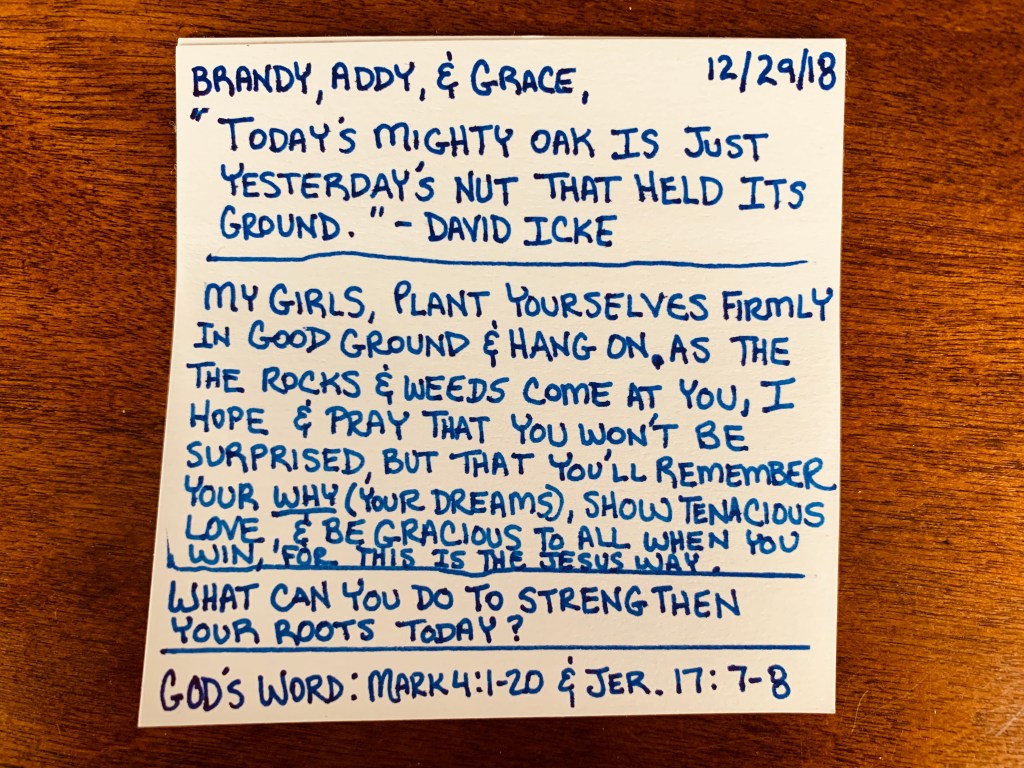 BRANDY, ADDY, & GRACE, 12/29/18
"TODAY'S MIGHTY OAK IS JUST
YESTERDAY'S NUT THAT HELD ITS
GROUND." - DAVID ICKE
MY GIRLS, PLANT YOURSELVES FIRMLY
IN GOOD GROUND & HANG ON. AS THE
THE ROCKS & WEEDS COME AT YOU, I
HOPE & PRAY THAT YOU WON'T BE
SURPRISED, BUT THAT YOU'LL REMEMBER
YOUR WHY (YOUR DREAMS), SHOW TENACIOUS
LOVE, & BE GRACIOUS TO ALL WHEN YOU
WIN, FOR THIS IS THE JESUS WAY.
WHAT CAN YOU DO TO STRENGTHEN
YOUR ROOTS TODAY?
GOD'S WORD: MARK 4:1-20 & JER. 17:7-8